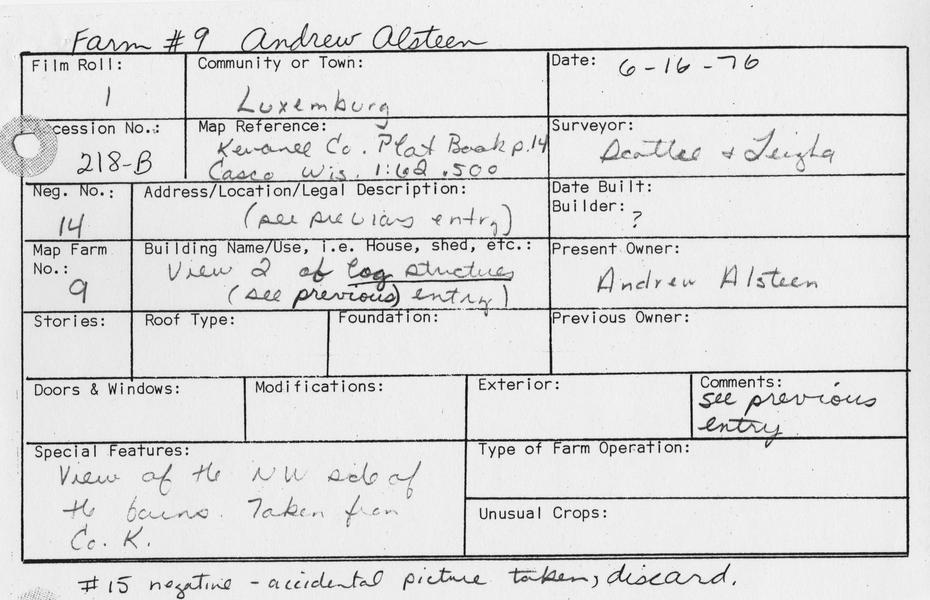 Farm #9 Andrew Alsteen
Film Roll:
1
Community or Town:
Luxemburg
Date: 6-16-76
ccession No.:
218-B
Map Reference:
Kewanee Co. Plat Book p.14
Casco Wis. 1:62.500
Surveyor:
& Leigha
Neg. No.:
14
Address/Location/Legal Description:
(see previous entry)
Date Built:
Builder: ?
Map Farm
No.:
9
Building Name/Use, i.e. House, shed, etc.:
View 2 of log structures
(see previous) entry)
Present Owner:
Andrew Alsteen
Stories:
Roof Type:
Foundation:
Previous Owner:
Doors & Windows:
Modifications:
Exterior:
Comments:
see previous
entry
Special Features:
View of the NW side of
the barns. Taken from
Co. K.
Type of Farm Operation:
Unusual Crops:
#15 negative - accidental picture taken, discard.